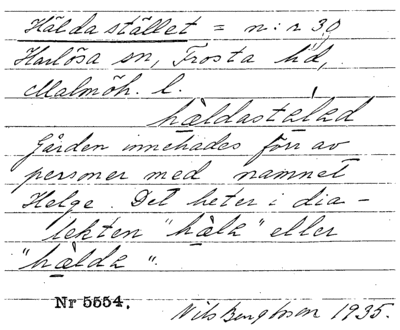 Hälda stället = n:r 30
Harlösa sn, Frosta hd,
Malmöh. l.
hældastælad
Gården innehades förr av
personer med namnet
Helge. Det heter i dia-
lekten "hæla" eller
"hælda".
Nr 5554. Nils Bengtsson 1935.